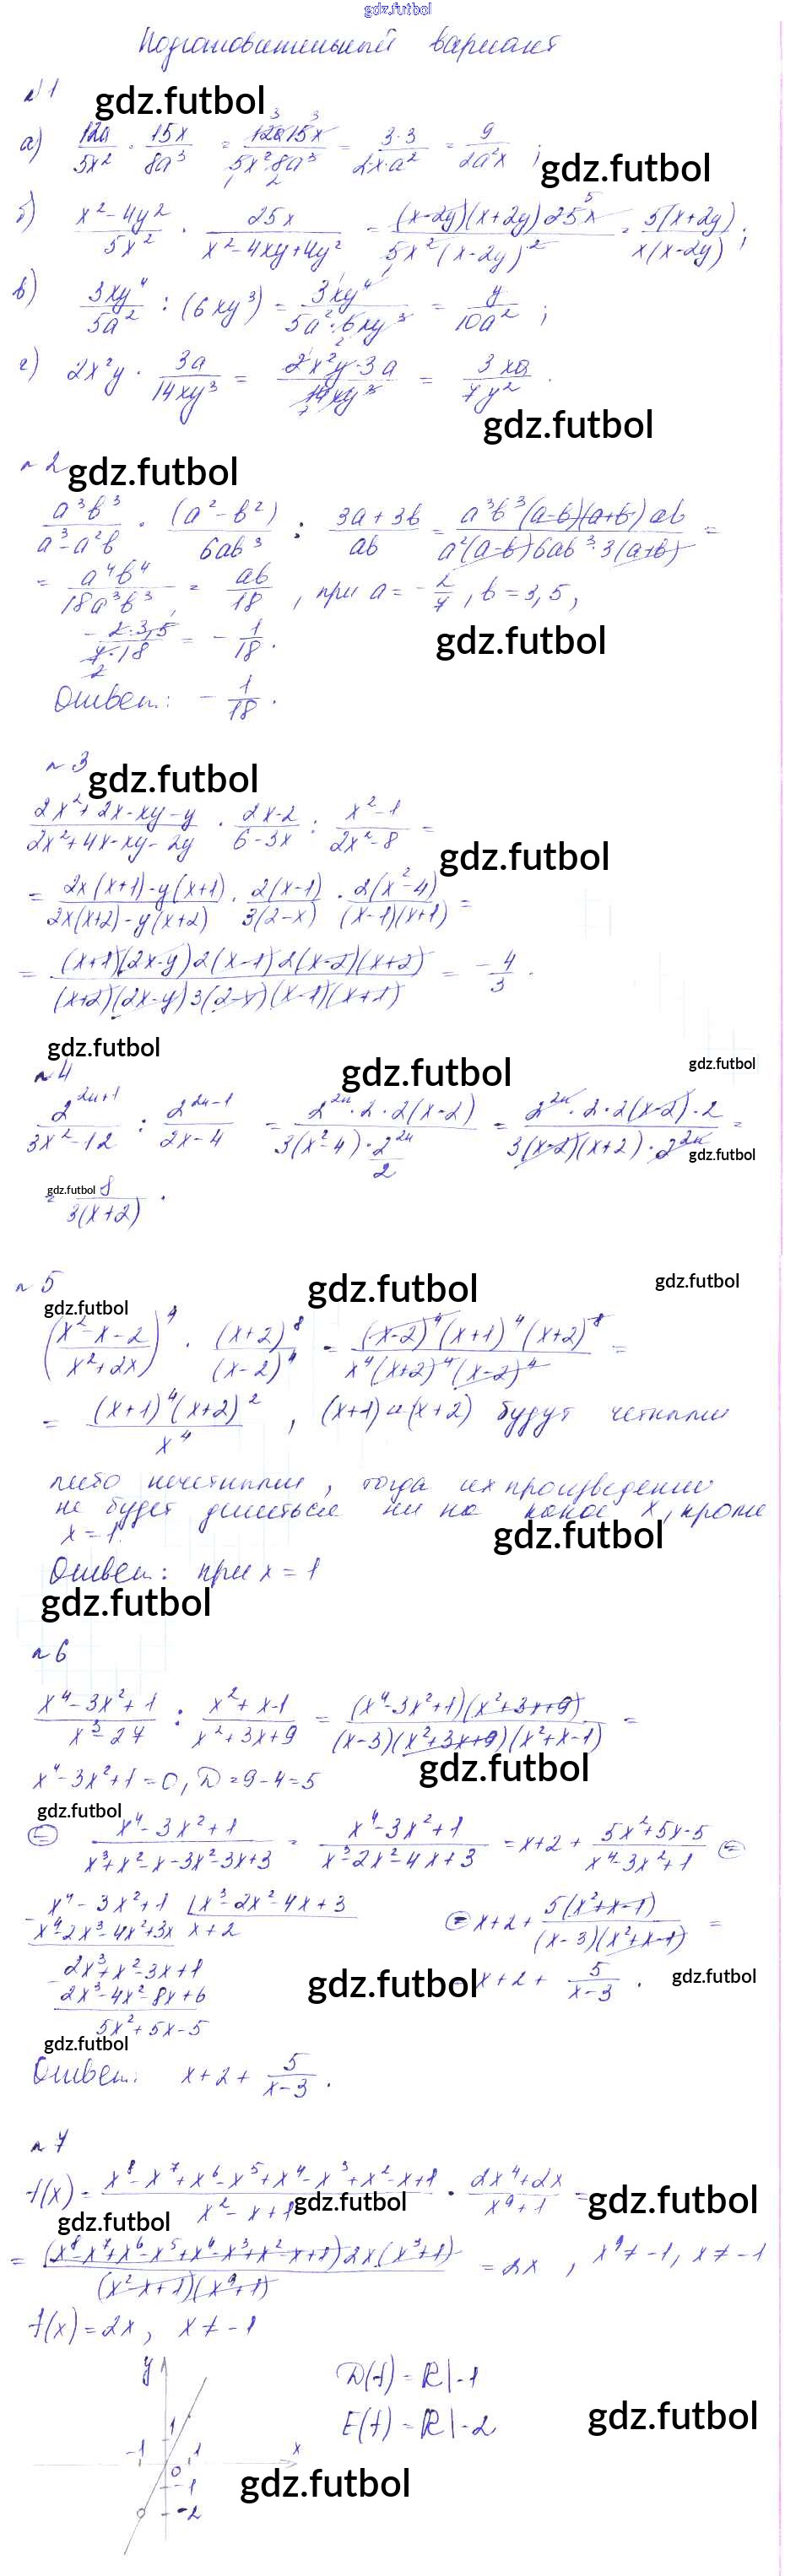 gdz.futbol
Подготовительный вариант
№1 gdz.futbol
а) 12a/5x² · 15x/8a³ = 12a·15x/5x²·8a³ = 3·3/2x·a² = 9/2a²x ;
gdz.futbol
б) x²-4y²/5x² · 25x/x²-4xy+4y² = (x-2y)(x+2y)25x/5x²(x-2y)² = 5(x+2y)/x(x-2y) ;
в) 3xy⁴/5a² : (6xy³) = 3xy⁴/5a²·6xy³ = y/10a² ;
г) 2x²y · 3a/14xy³ = 2x²y·3a/14xy³ = 3xa/7y² .
gdz.futbol
№2 gdz.futbol
a³b³/a³-a²b · (a²-b²)/6ab³ : 3a+3b/ab = a³b³(a-b)(a+b)ab/a²(a-b)6ab³·3(a+b) =
= a⁴b⁴/18a³b³ = ab/18 , при a = -2/7 , b = 3,5 ,
-2·3,5/7·18 = -1/18 .
gdz.futbol
Ответ: -1/18 .
№3 gdz.futbol
2x²+2x-xy-y/2x²+4x-xy-2y · 2x-2/6-3x : x²-1/2x²-8 =
gdz.futbol
= 2x(x+1)-y(x+1)/2x(x+2)-y(x+2) · 2(x-1)/3(2-x) · 2(x²-4)/(x-1)(x+1) =
= (x+1)(2x-y)2(x-1)2(x-2)(x+2)/(x+2)(2x-y)3(2-x)(x-1)(x+1) = -4/3 .
gdz.futbol
gdz.futbol
gdz.futbol
№4
2²ⁿ⁺¹/3x²-12 : 2²ⁿ⁻¹/2x-4 = 2²ⁿ·2·2(x-2)/3(x²-4)·2²ⁿ/2 = 2²ⁿ·2·2(x-2)·2/3(x-2)(x+2)·2²ⁿ =
gdz.futbol
gdz.futbol
= 8/3(x+2) .
№5
gdz.futbol
gdz.futbol
gdz.futbol
(x²-x-2/x²+2x)⁴ · (x+2)⁸/(x-2)⁴ = (x-2)⁴(x+1)⁴(x+2)⁸/x⁴(x+2)⁴(x-2)⁴ =
= (x+1)⁴(x+2)²/x⁴ , (x+1) и (x+2) будут четными
либо нечетными, тогда их произведение
не будет делиться ни на какое x, кроме
x = 1.
gdz.futbol
Ответ: при x = 1
gdz.futbol
№6
x⁴-3x²+1/x³-27 : x²+x-1/x²+3x+9 = (x⁴-3x²+1)(x²+3x+9)/(x-3)(x²+3x+9)(x²+x-1) =
gdz.futbol
x⁴-3x²+1=0, D=9-4=5
gdz.futbol
= x⁴-3x²+1/x³+x²-x-3x²-3x+3 = x⁴-3x²+1/x³-2x²-4x+3 = x+2 + 5x²+5x-5/x⁴-3x²+1 =
x⁴-3x²+1 | x³-2x²-4x+3
x⁴-2x³-4x²+3x x+2
= x+2 + 5(x²+x-1)/(x-3)(x²+x-1) =
2x³+x²-3x+1
2x³-4x²-8x+6
gdz.futbol
x+2+ 5/x-3 .
gdz.futbol
5x²+5x-5
gdz.futbol
Ответ: x+2+ 5/x-3 .
№7
f(x) = x⁸-x⁷+x⁶-x⁵+x⁴-x³+x²-x+1/x²-x+1 · 2x⁴+2x/x⁹+1 =
gdz.futbol
gdz.futbol
gdz.futbol
= (x⁸-x⁷+x⁶-x⁵+x⁴-x³+x²-x+1)2x(x³+1)/(x²-x+1)(x⁹+1) = 2x , x⁹≠-1, x≠-1
f(x) = 2x, x≠-1
y
D(f) = R|-1
E(f) = R|-2
gdz.futbol
1
-1 1 x
0
-1
-2
gdz.futbol